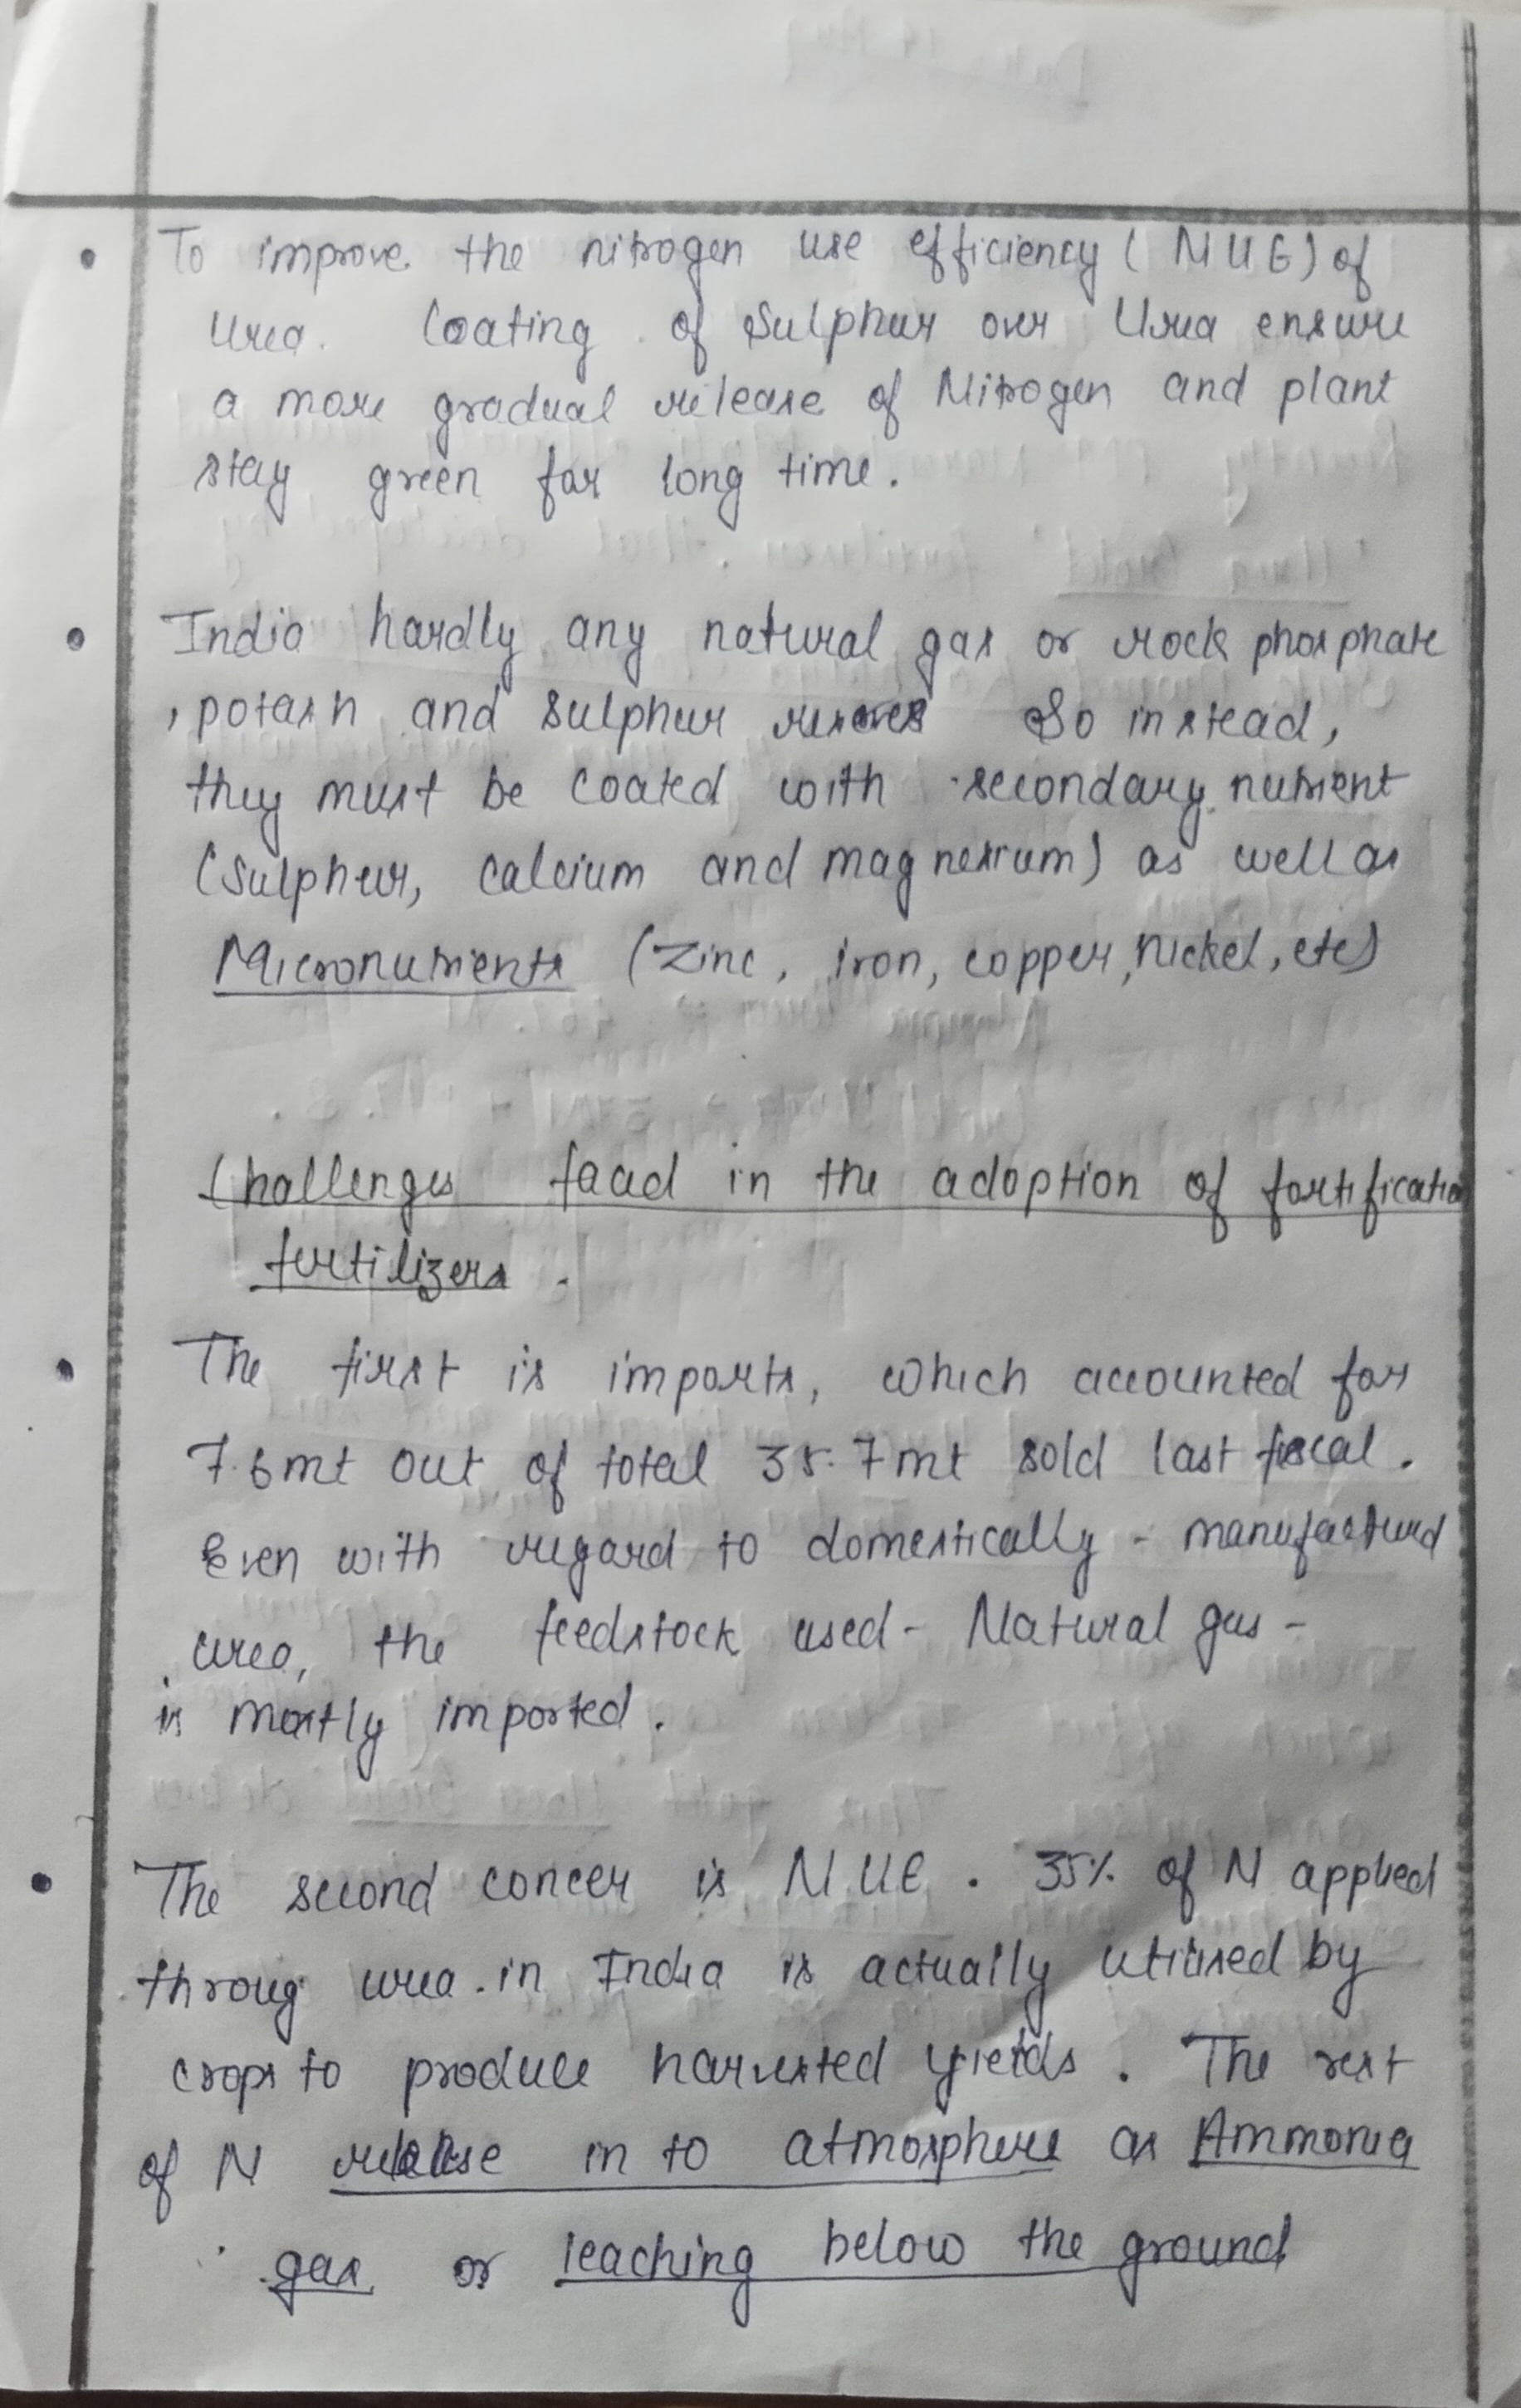 • To improve the nitrogen use efficiency (NUE) of
Urea. Coating of Sulphur over Urea ensure
a more gradual release of Nitrogen and plant
stay green for long time.
• India hardly any natural gas or rock phosphate
, potash and Sulphur reserves So instead,
they must be coated with secondary nutrient
(Sulphur, Calcium and magnesium) as well as
Micronutrients (Zinc, iron, copper, nickel, etc)
Challenges faced in the adoption of fortification
fertilizers.
• The first is imports, which accounted for
7.6mt out of total 35.7mt sold last fiscal.
Even with regard to domestically - manufactured
urea, the feedstock used - Natural gas -
is mostly imported.
• The second concer is NUE. 35% of N applied
throug urea in India is actually utilised by
crops to produce harvested yields. The rest
of N release in to atmosphere as Ammonia
gas or leaching below the ground